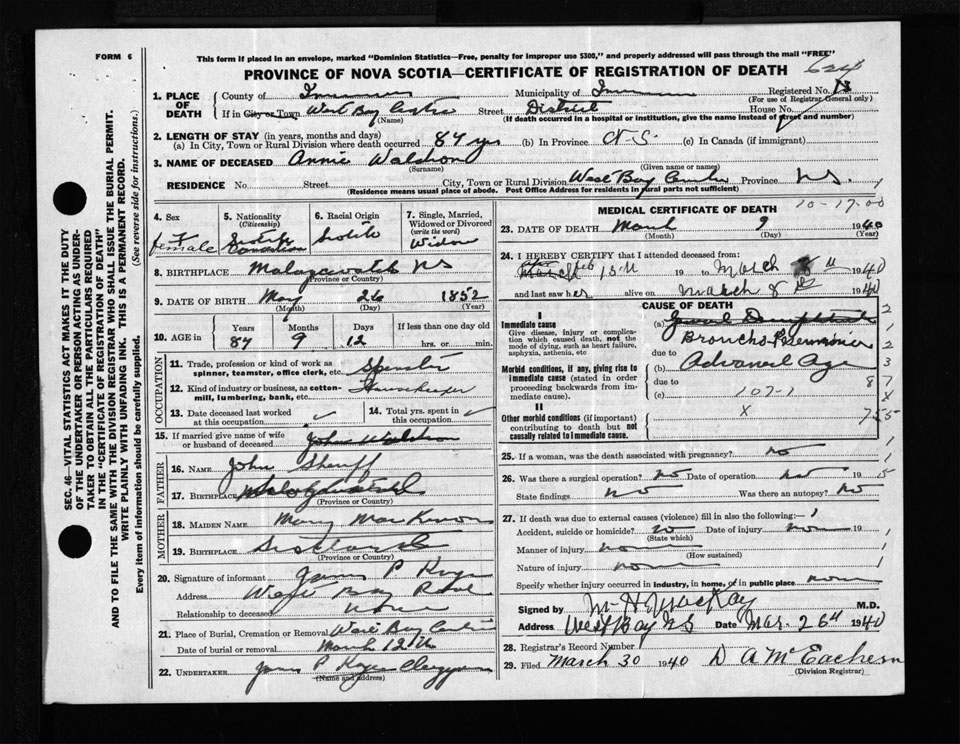 FORM 6
This form if placed in an envelope, marked "Dominion Statistics—Free, penalty for improper use $300," and properly addressed will pass through the mail "FREE"
PROVINCE OF NOVA SCOTIA—CERTIFICATE OF REGISTRATION OF DEATH
1. PLACE OF DEATH
County of
Municipality of
Registered No.
(For use of Registrar General only)
If in City or Town West Bay Centre Street District House No.
(Name)
(If death occurred in a hospital or institution, give the name instead of street and number)
2. LENGTH OF STAY (in years, months and days)
(a) In City, Town or Rural Division where death occurred 87 yrs (b) In Province N.S. (c) In Canada (if immigrant)
3. NAME OF DECEASED Annie Waldron
(Surname) (Given name or names)
RESIDENCE No. Street City, Town or Rural Division West Bay Centre Province N.S.
(Residence means usual place of abode. Post Office Address for residents in rural parts not sufficient)
4. Sex
female
5. Nationality
(Citizenship)
6. Racial Origin
7. Single, Married, Widowed or Divorced
(write the word)
Widow
8. BIRTHPLACE Malagawatch NS
(Province or Country)
9. DATE OF BIRTH May 26 1852
(Month) (Day) (Year)
10. AGE in
Years Months Days If less than one day old
87 9 12 hrs. or min.
OCCUPATION
11. Trade, profession or kind of work as spinner, teamster, office clerk, etc. Spinster
12. Kind of industry or business, as cotton-mill, lumbering, bank, etc.
13. Date deceased last worked at this occupation
14. Total yrs. spent in this occupation
15. If married give name of wife or husband of deceased John Waldron
FATHER
16. NAME John
17. BIRTHPLACE
(Province or Country)
MOTHER
18. MAIDEN NAME Mary MacKinnon
19. BIRTHPLACE Scotland
(Province or Country)
20. Signature of informant
Address West Bay Road
Relationship to deceased
21. Place of Burial, Cremation or Removal West Bay Centre
Date of burial or removal March 12th
22. UNDERTAKER Clergyman
(Name and address)
MEDICAL CERTIFICATE OF DEATH
10-17-00
23. DATE OF DEATH March 9 1940
(Month) (Day) (Year)
24. I HEREBY CERTIFY that I attended deceased from:
feb 19 to March 8th 1940
and last saw her alive on March 8th 1940
CAUSE OF DEATH
I
Immediate cause
Give disease, injury or complication which caused death, not the mode of dying, such as heart failure, asphyxia, asthenia, etc
(a)
Broncho-Pneumonia
due to
Morbid conditions, if any, giving rise to immediate cause (stated in order proceeding backwards from immediate cause).
(b) Advanced Age
due to
(c) 107-1
II
Other morbid conditions (if important) contributing to death but not causally related to immediate cause.
X
25. If a woman, was the death associated with pregnancy? no
26. Was there a surgical operation? no Date of operation 19
State findings no Was there an autopsy? no
27. If death was due to external causes (violence) fill in also the following:—
Accident, suicide or homicide? no Date of injury none 19
(State which)
Manner of injury none
(How sustained)
Nature of injury none
Specify whether injury occurred in industry, in home, or in public place none
Signed by MacKay M.D.
Address West Bay NS Date Mar. 26th 1940
28. Registrar's Record Number
29. Filed March 30 1940 D A McEachern
(Division Registrar)
SEC. 46—VITAL STATISTICS ACT MAKES IT THE DUTY
OF THE UNDERTAKER OR PERSON ACTING AS UNDER-
TAKER TO OBTAIN ALL THE PARTICULARS REQUIRED
IN THE "CERTIFICATE OF REGISTRATION OF DEATH"
AND TO FILE THE SAME WITH THE DIVISION REGISTRAR WHO SHALL ISSUE THE BURIAL PERMIT.
WRITE PLAINLY WITH UNFADING INK. THIS IS A PERMANENT RECORD.
Every item of information should be carefully supplied. (See reverse side for instructions.)